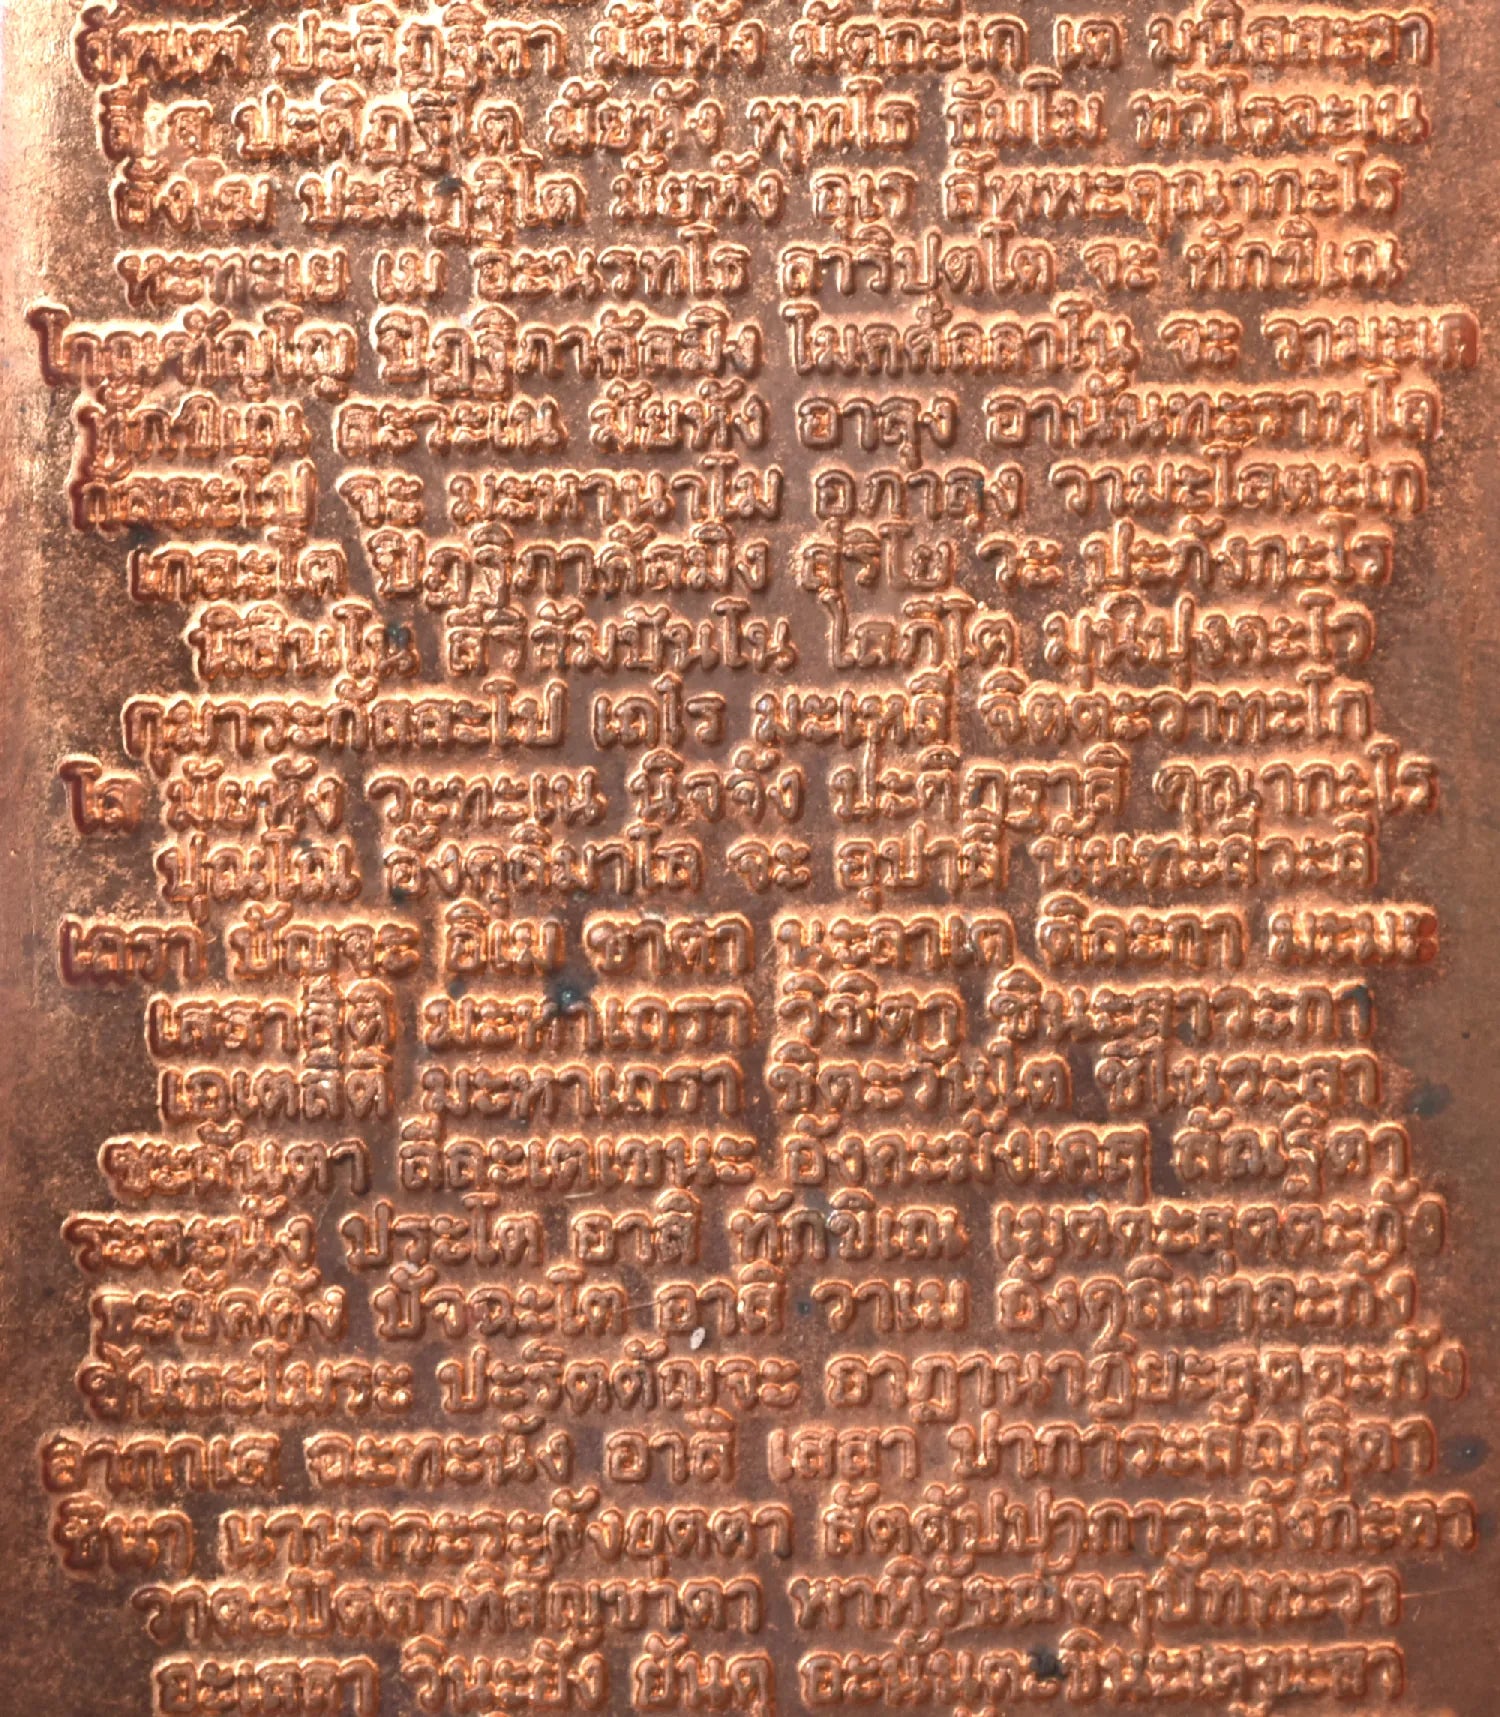 สัพเพ ปะติฏฐิตา มัยหัง มัตถะเก เต มุนิสสะรา
สีเส ปะติฏฐิโต มัยหัง พุทโธ ธัมโม ทวิโรจะเน
สังโฆ ปะติฏฐิโต มัยหัง อุเร สัพพะคุณากะโร
หะทะเย เม อะนุรุทโธ สารีปุตโต จะ ทักขิเณ
โกณฑัญโญ ปิฏฐิภาคัสมิง โมคคัลลาโน จะ วามะเก
ทักขิเณ สะวะเน มัยหัง อาสุง อานันทะราหุโล
กัสสะโป จะ มะหานาโม อุภาสุง วามะโสตะเก
เกสะโต ปิฏฐิภาคัสมิง สุริโย วะ ปะภังกะโร
นิสินโน สิริสัมปันโน โสภิโต มุนิปุงคะโว
กุมาระกัสสะโป เถโร มะเหสี จิตตะวาทะโก
โส มัยหัง วะทะเน นิจจัง ปะติฏฐาสิ คุณากะโร
ปุณโณ อังคุลิมาโล จะ อุปาลี นันทะสีวะลี
เถรา ปัญจะ อิเม ชาตา นะลาเต ติละกา มะมะ
เสสาสีติ มะหาเถรา วิชิตา ชินะสาวะกา
เอเตสีติ มะหาเถรา ชิตะวันโต ชิโนระสา
ชะลันตา สีละเตเชนะ อังคะมังเคสุ สัณฐิตา
ระตะนัง ปุระโต อาสิ ทักขิเณ เมตตะสุตตะกัง
ธะชัคคัง ปัจฉะโต อาสิ วาเม อังคุลิมาละกัง
ขันธะโมระ ปะริตตัญจะ อาฏานาฏิยะสุตตะกัง
อากาเส ฉะทะนัง อาสิ เสสา ปาการะสัณฐิตา
ชินา นานาวะระสังยุตตา สัตตัปปาการะลังกะตา
วาตะปิตตาทิสัญชาตา พาหิรัชฌัตตุปัททะวา
อะเสสา วินะยัง ยันตุ อะนันตะชินะเตชะสา